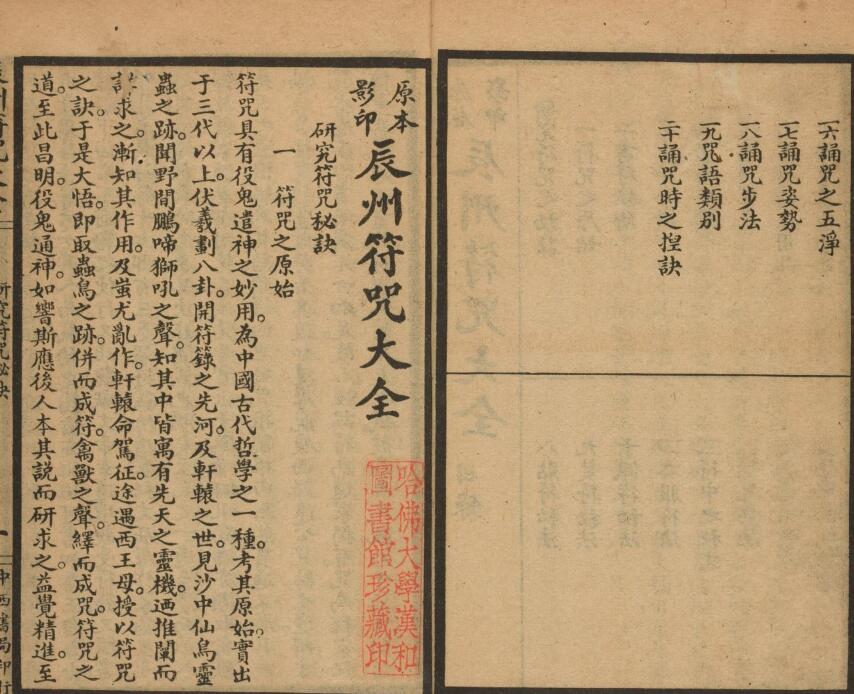 一六誦咒之五淨
一七誦咒姿勢
一八誦咒步法
一九咒語類別
二十誦咒時之揑訣
原本
影印
辰州符咒大全
哈佛大學漢和
圖書館珍藏印
研究符咒秘訣
一　符咒之原始
符咒具有役鬼遣神之妙用。為中國古代哲學之一種。考其原始。實出
于三代以上。伏羲劃八卦。開符籙之先河。及軒轅之世。見沙中仙鳥靈
蟲之跡。聞野間鵬啼獅吼之聲。知其中皆寓有先天之靈機。迺推闡而
求之。漸知其作用。及蚩尤亂作。軒轅命駕征。途遇西王母。授以符咒
之訣。于是大悟。即取蟲鳥之跡。併而成符。禽獸之聲。繹而成咒。符咒之
道。至此昌明。役鬼通神。如響斯應。後人本其說而研求之。益覺精進。至
研究符咒秘訣
一
中西書局印行